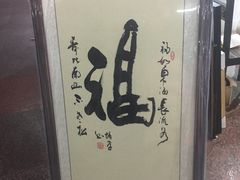 福如東海長流水
福
寿比南山不老松